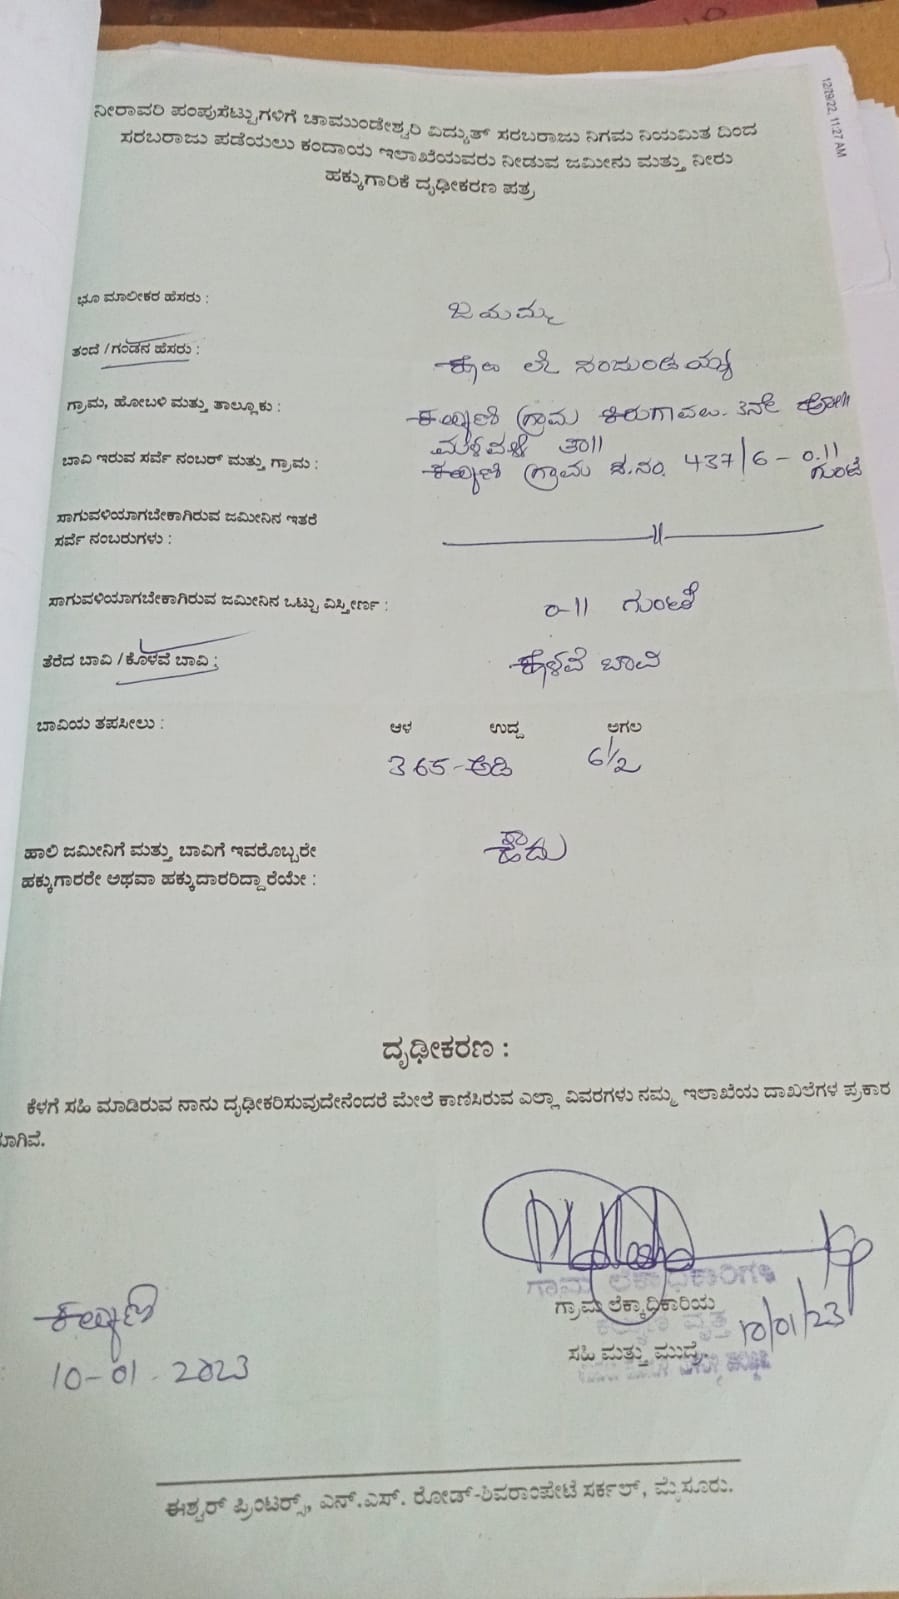 12/29/22, 11:27 AM
ನೀರಾವರಿ ಪಂಪುಸೆಟ್ಟುಗಳಿಗೆ ಚಾಮುಂಡೇಶ್ವರಿ ವಿದ್ಯುತ್ ಸರಬರಾಜು ನಿಗಮ ನಿಯಮಿತ ದಿಂದ
ಸರಬರಾಜು ಪಡೆಯಲು ಕಂದಾಯ ಇಲಾಖೆಯವರು ನೀಡುವ ಜಮೀನು ಮತ್ತು ನೀರು
ಹಕ್ಕುಗಾರಿಕೆ ದೃಢೀಕರಣ ಪತ್ರ
ಭೂ ಮಾಲೀಕರ ಹೆಸರು : ಜಯಮ್ಮ
ತಂದೆ /ಗಂಡನ ಹೆಸರು : ಲೇ ನಂಜುಂಡಯ್ಯ
ಗ್ರಾಮ, ಹೋಬಳಿ ಮತ್ತು ತಾಲ್ಲೂಕು : ಕಲ್ಕುಣಿ ಗ್ರಾಮ ಕಿರುಗಾವಲು 3ನೇ ಹೋ||
ಮಳವಳ್ಳಿ ತಾ||
ಬಾವಿ ಇರುವ ಸರ್ವೆ ನಂಬರ್ ಮತ್ತು ಗ್ರಾಮ : ಕಲ್ಕುಣಿ ಗ್ರಾಮ ಸ.ನಂ. 437/6 - 0.11
ಗುಂಟೆ
ಸಾಗುವಳಿಯಾಗಬೇಕಾಗಿರುವ ಜಮೀನಿನ ಇತರೆ
ಸರ್ವೆ ನಂಬರುಗಳು : —॥—
ಸಾಗುವಳಿಯಾಗಬೇಕಾಗಿರುವ ಜಮೀನಿನ ಒಟ್ಟು ವಿಸ್ತೀರ್ಣ : 0-11 ಗುಂಟೆ
ತೆರೆದ ಬಾವಿ /ಕೊಳವೆ ಬಾವಿ : ಕೊಳವೆ ಬಾವಿ
ಬಾವಿಯ ತಪಸೀಲು : ಆಳ ಉದ್ದ ಅಗಲ
365-ಅಡಿ 6½
ಹಾಲಿ ಜಮೀನಿಗೆ ಮತ್ತು ಬಾವಿಗೆ ಇವರೊಬ್ಬರೇ ಹೌದು
ಹಕ್ಕುಗಾರರೇ ಅಥವಾ ಹಕ್ಕುದಾರರಿದ್ದಾರೆಯೇ :
ದೃಢೀಕರಣ :
ಕೆಳಗೆ ಸಹಿ ಮಾಡಿರುವ ನಾನು ದೃಢೀಕರಿಸುವುದೇನೆಂದರೆ ಮೇಲೆ ಕಾಣಿಸಿರುವ ಎಲ್ಲಾ ವಿವರಗಳು ನಮ್ಮ ಇಲಾಖೆಯ ದಾಖಲೆಗಳ ಪ್ರಕಾರ
ವಾಗಿವೆ.
ಗ್ರಾಮ ಲೆಕ್ಕಾಧಿಕಾರಿಗಳು
ಗ್ರಾಮ ಲೆಕ್ಕಾಧಿಕಾರಿಯ
ಸಹಿ ಮತ್ತು ಮುದ್ರೆ. 10/01/23
ಕಲ್ಕುಣಿ
10-01-2023
ಈಶ್ವರ್ ಪ್ರಿಂಟರ್ಸ್, ಎನ್.ಎಸ್. ರೋಡ್-ಶಿವರಾಂಪೇಟೆ ಸರ್ಕಲ್, ಮೈಸೂರು.